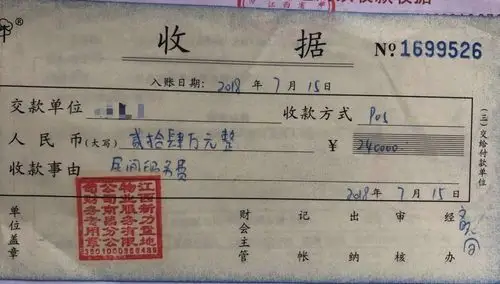 收据
№ 1699526
入账日期: 2018 年 7 月 15 日
交款单位 收款方式 Pos
人民币(大写) 贰拾肆万元整 ¥ 240000
收款事由 居间服务费
2018 年 7 月 15 日
单位盖章 财会主管 记帐 出纳 审核 经办
(三)交给付款单位
江西新力置地
物业服务有限
公司南昌分公
司财务专用章